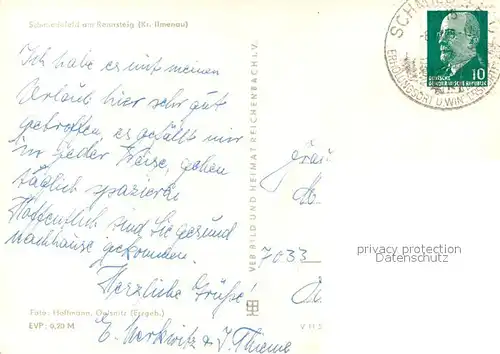 Schmiedefeld am Rennsteig (Kr. Ilmenau)
Ich habe es mit meinen
Urlaub hier sehr gut
getroffen, es gefällt mir
in jeder Weise, gehen
täglich spazieren
Hoffentlich sind Sie gesund
nachhause gekommen.
Herzliche Grüße!
E. Merkwitz & J. Thieme
Foto: Hoffmann, Oelsnitz (Erzgeb.)
EVP: 0,20 M
VEB BILD UND HEIMAT REICHENBACH i. V.
V 11 5
7033
SCHMIEDEF
ERHOLUNGSORT U. WIN
DEUTSCHE
DEMOKRATISCHE REPUBLIK
10
privacy protection